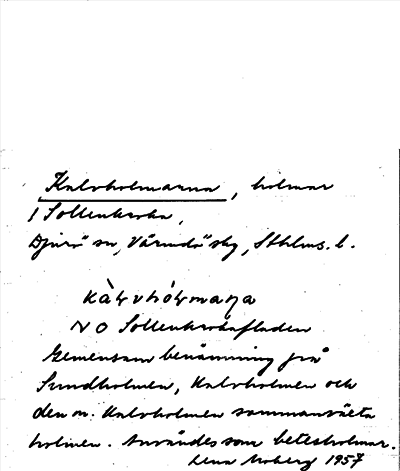 Kalvholmarna, holmar
i Sollenkroka,
Djurö sn, Värmdö skg, Sthlms l.
NO Sollenkrokafladen
Gemensam benämning på
Sundholmen, Kalvholmen och
den m. Kalvholmen sammanväxta
holmen. Användes som betesholmar.
Lena Moberg 1957